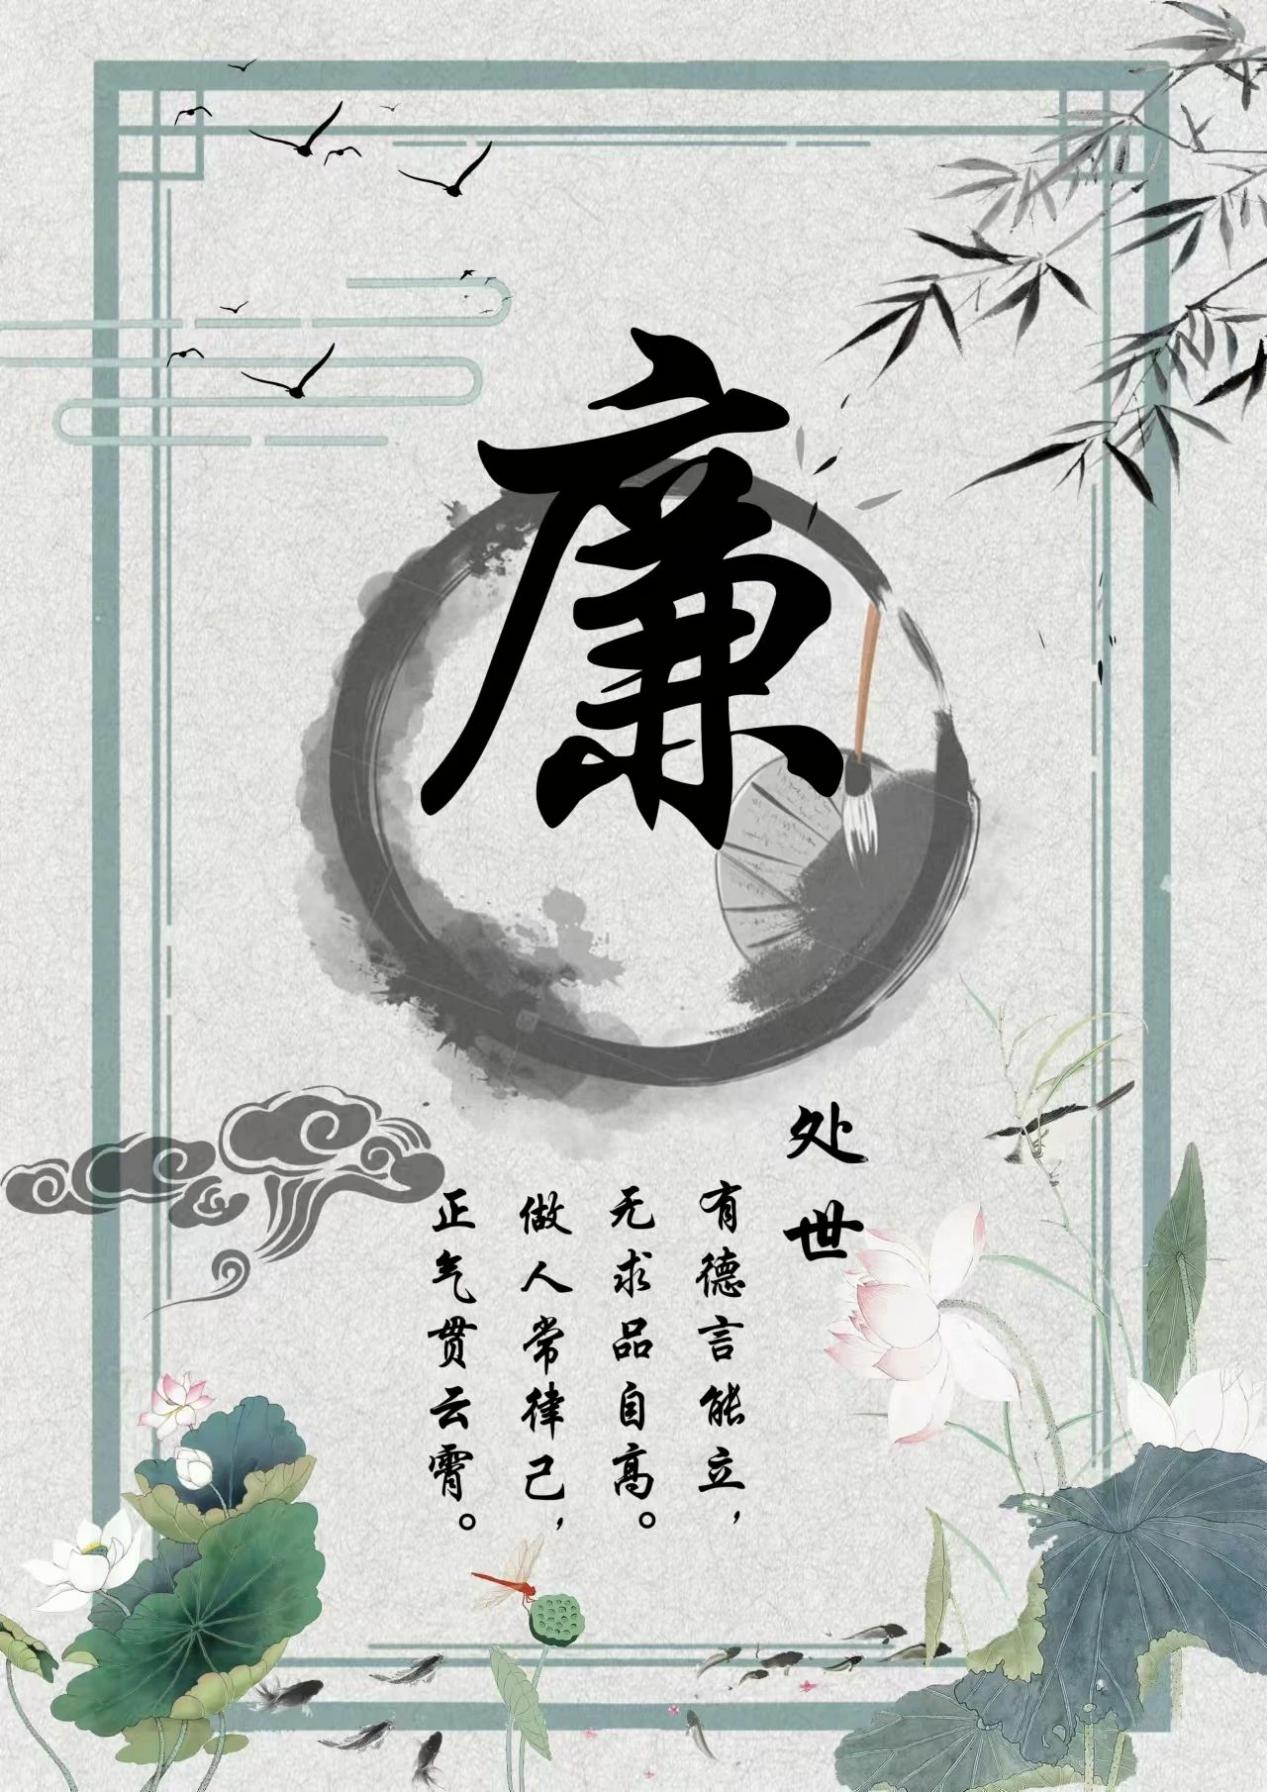 廉
处世
有德言能立，
无求品自高。
做人常律己，
正气贯云霄。